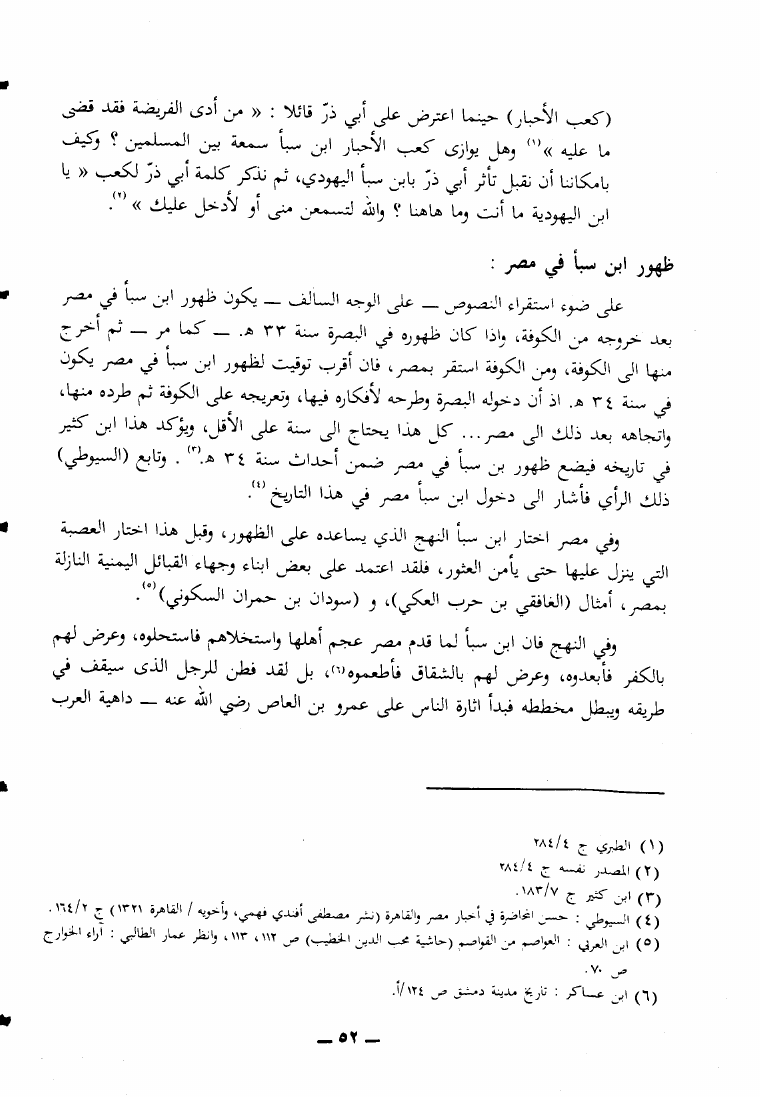 (كعب الأحبار) حينما اعترض على أبي ذرّ قائلا : « من أدى الفريضة فقد قضى
ما عليه »(١) وهل يوازى كعب الأحبار ابن سبأ سمعة بين المسلمين ؟ وكيف
بامكاننا أن نقبل تأثر أبي ذرّ بابن سبأ اليهودي، ثم نذكر كلمة أبي ذرّ لكعب « يا
ابن اليهودية ما أنت وما هاهنا ؟ والله لتسمعن منى أو لأدخل عليك »(٢).
ظهور ابن سبأ في مصر :
على ضوء استقراء النصوص — على الوجه السالف — يكون ظهور ابن سبأ في مصر
بعد خروجه من الكوفة، واذا كان ظهوره في البصرة سنة ٣٣ هـ. — كما مر — ثم أخرج
منها الى الكوفة، ومن الكوفة استقر بمصر، فان أقرب توقيت لظهور ابن سبأ في مصر يكون
في سنة ٣٤ هـ. اذ أن دخوله البصرة وطرحه لأفكاره فيها، وتعريجه على الكوفة ثم طرده منها،
واتجاهه بعد ذلك الى مصر... كل هذا يحتاج الى سنة على الأقل، ويؤكد هذا ابن كثير
في تاريخه فيضع ظهور بن سبأ في مصر ضمن أحداث سنة ٣٤ هـ.(٣) . وتابع (السيوطي)
ذلك الرأي فأشار الى دخول ابن سبأ مصر في هذا التاريخ(٤).
وفي مصر اختار ابن سبأ النهج الذي يساعده على الظهور، وقبل هذا اختار العصبة
التي ينزل عليها حتى يأمن العثور، فلقد اعتمد على بعض ابناء وجهاء القبائل اليمنية النازلة
بمصر، أمثال (الغافقي بن حرب العكي)، و (سودان بن حمران السكوني)(٥).
وفي النهج فان ابن سبأ لما قدم مصر عجم أهلها واستخلاهم فاستحلوه، وعرض لهم
بالكفر فأبعدوه، وعرض لهم بالشقاق فأطعموه(٦)، بل لقد فطن للرجل الذى سيقف في
طريقه ويبطل مخططه فبدأ اثارة الناس على عمرو بن العاص رضي الله عنه — داهية العرب
(١) الطبري ج ٢٨٤/٤
(٢) المصدر نفسه ج ٢٨٤/٤
(٣) ابن كثير ج ١٨٣/٧.
(٤) السيوطي : حسن المحاضرة في أخبار مصر والقاهرة (نشر مصطفى أفندي فهمي، وأخويه / القاهرة ١٣٢١) ج ١٦٤/٢.
(٥) ابن العربي : العواصم من القواصم (حاشية محب الدين الخطيب) ص ١١٢، ١١٣، وانظر عمار الطالبي : آراء الخوارج
ص ٧٠.
(٦) ابن عساكر : تاريخ مدينة دمشق ص ١٢٤/أ.
— ٥٢ —